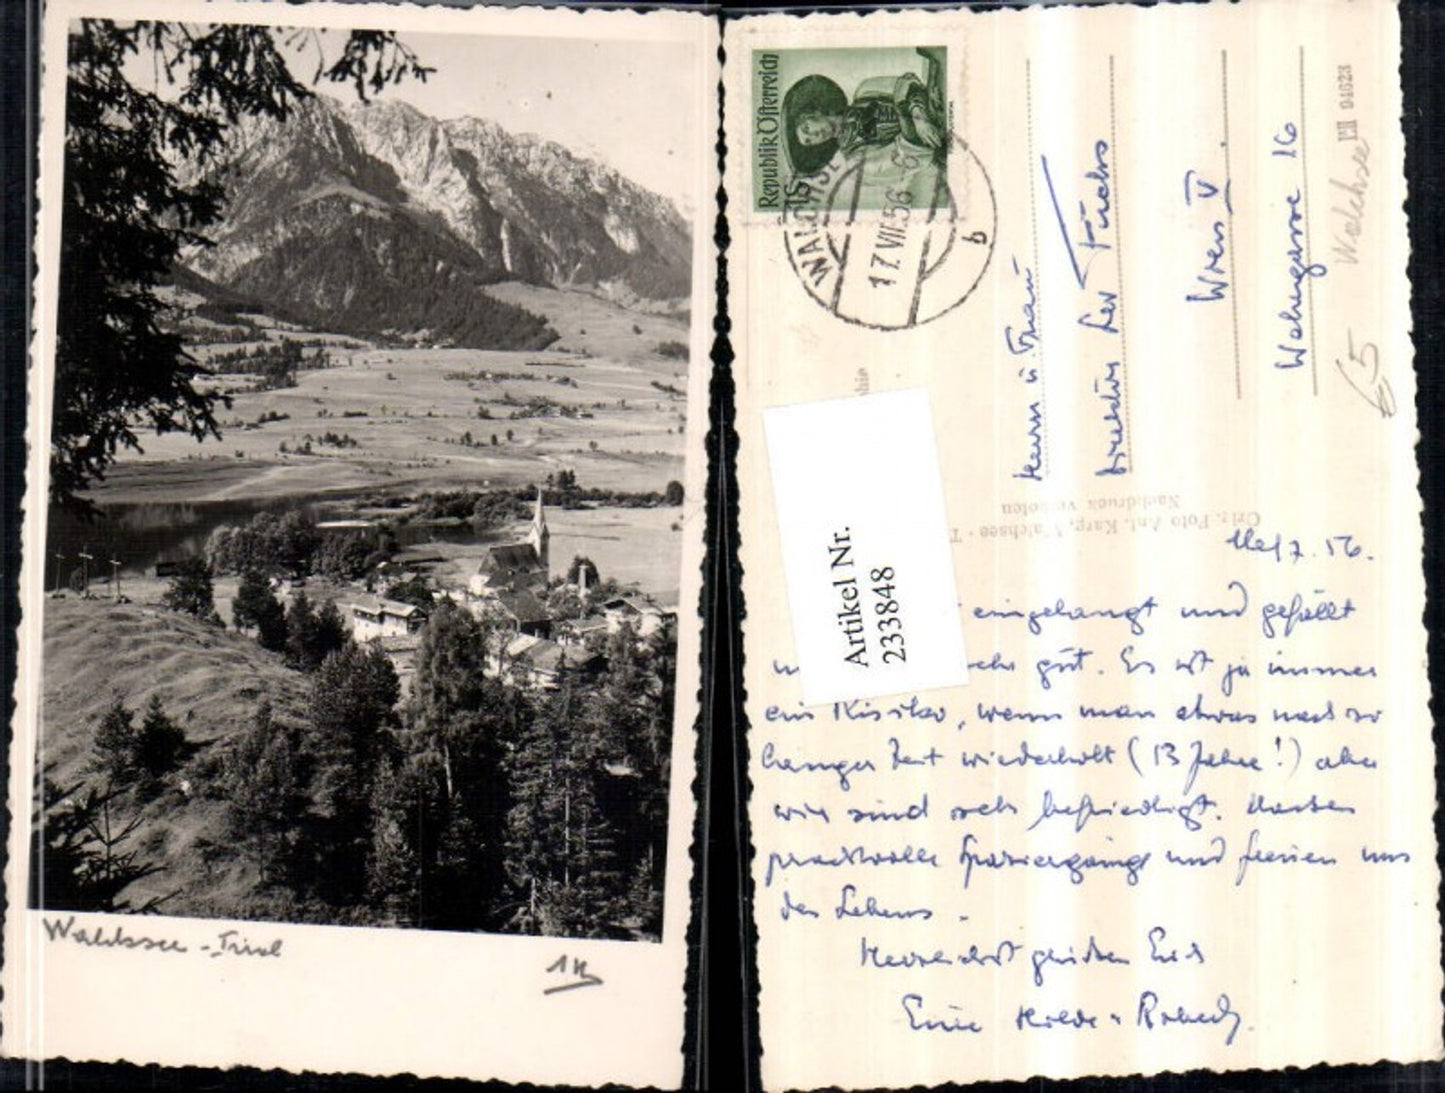 Walchsee - Tirol
AK
Republik Österreich
WALCHSEE
17.VII.56
b
Herrn u. Frau
Direktor Leo Fuchs
Wien V.
Wehrgasse 16
94623
Walchsee
€5
Orig. Foto Ant. Karg, Walchsee - T
Nachdruck verboten
Artikel Nr.
233848
7. 56.
eingelangt und gefällt
sehr gut. Es ist ja immer
ein Risiko, wenn man etwas nach so
langer Zeit wiederholt (13 Jahre!) aber
wir sind sehr befriedigt. Machen
prachtvolle Spaziergänge und freuen uns
des Lebens.
Herzlichst grüßen Euch
Eure Hilde u. Robert